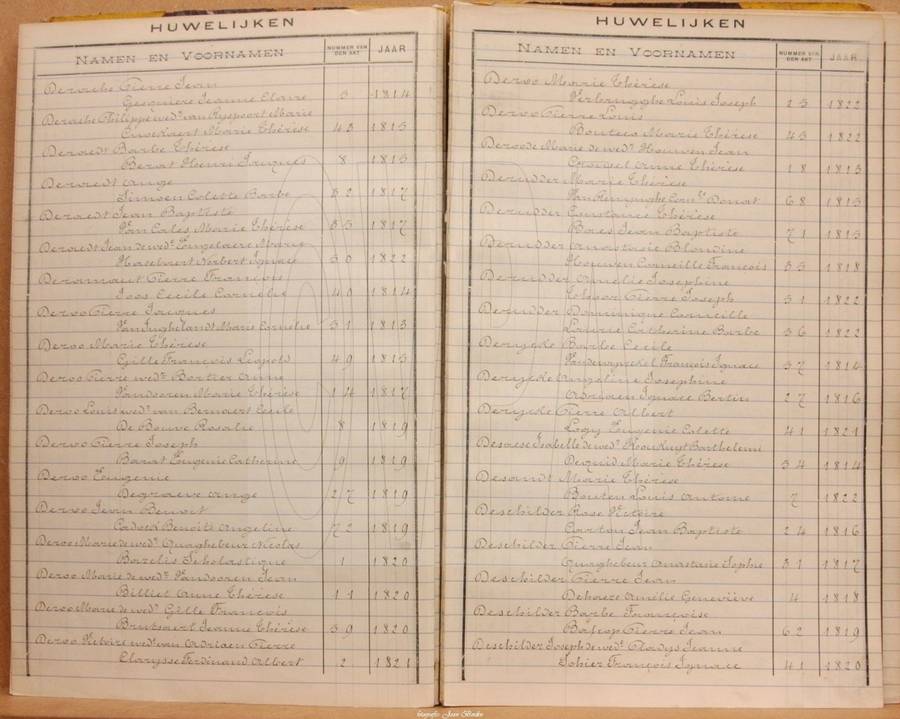 HUWELIJKEN
NAMEN EN VOORNAMEN NUMMER VAN DEN AKT JAAR
Derache Pierre Jean
Gesquiere Jeanne Claire 3 1814
Derache Philippe wedr van Ryspoort Marie
Marie Thérèse 43 1815
Deraedt Barbe Thérèse
Berat Henri Jacques 8 1815
Deraedt Ange
Simoen Colette Barbe 32 1817
Deraedt Jean Baptiste
Van Cales Marie Thérèse 35 1817
Deraedt Jean de wedr Engelaere Marie
Norbert Ignace 30 1822
Deramaut Pierre François
Joos Cecile Cornelie 40 1814
Deroo Pierre Jacques
Marie Cornelie 31 1813
Deroo Marie Thérèse
Gille François Leopold 49 1815
Deroo Pierre wedr Bortier Anne
Vandooren Marie Thérèse 14 1817
Deroo Louis wedr van Bernaert Cecile
De Bouve Rosalie 8 1819
Deroo Pierre Joseph
Barat Eugenie Catherine 9 1819
Deroo Eugenie
Degraeve Ange 27 1819
Deroo Jean Benoit
Benoite Angeline 72 1819
Deroo Marie de wedr Quaghebeur Nicolas
Borrelis Scholastique 1 1820
Deroo Marie de wedr Vandooren Jean
Billiet Anne Thérèse 11 1820
Deroo Marie de wedr Gille François
Brutsaert Jeanne Thérèse 39 1820
Deroo Victoire wedr van Adriaen Pierre
Clarysse Ferdinand Albert 2 1821
HUWELIJKEN
NAMEN EN VOORNAMEN NUMMER VAN DEN AKT JAAR
Deroo Marie Thérèse
Verbrugghe Louis Joseph 25 1822
Deroo Pierre Louis
Marie Thérèse 45 1822
Deroode Marie de wedr Houwen Jean
Crousel Anne Thérèse 18 1813
Derudder Marie Thérèse
Donat 68 1813
Derudder Constance Thérèse
Baes Jean Baptiste 71 1813
Derudder Anastasie Blondine
Houwen Corneille François 35 1818
Derudder Amélie Josephine
Pierre Joseph 31 1822
Derudder Dominique Corneille
Catherine Barbe 36 1822
Derycke Barbe Cecile
François Ignace 37 1814
Derycke Angeline Josephine
Adriaen Ignace Bertin 27 1816
Derycke Pierre Albert
Logy Eugenie Colette 41 1821
Desaese Isabelle de wedr Barthelemi
Dequid Marie Thérèse 34 1814
Desandt Marie Thérèse
Bouten Louis Antoine 7 1822
Deschilder Rose Victoire
Carton Jean Baptiste 24 1816
Deschilder Pierre Jean
Quaghebeur Anastasie Sophie 31 1817
Deschilder Pierre Jean
Dehaeze Amélie Geneviève 4 1818
Deschilder Barbe Françoise
Pierre Jean 62 1819
Deschilder Joseph de wedr Gladys Jeanne
Sohier François Ignace 41 1820